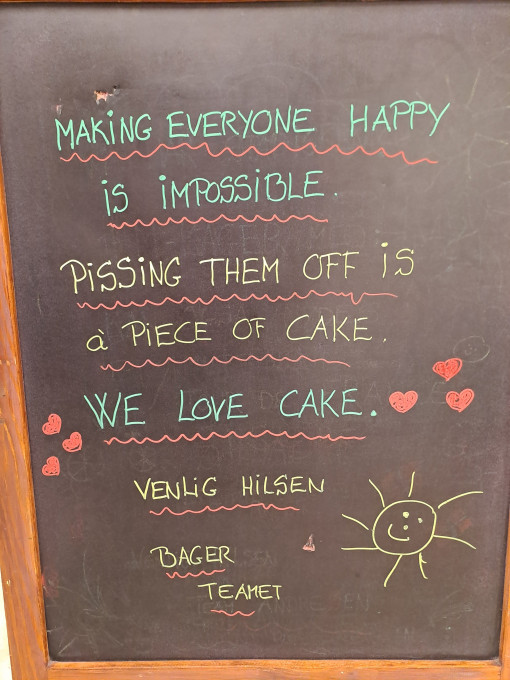 MAKiNG EVERYONE HAPPY
iS iMPOSSiBLE.
PiSSiNG THEM OFF iS
à PiECE OF CAKE.
WE LOVE CAKE.
VENLiG HiLSEN
BAGER
TEAMET